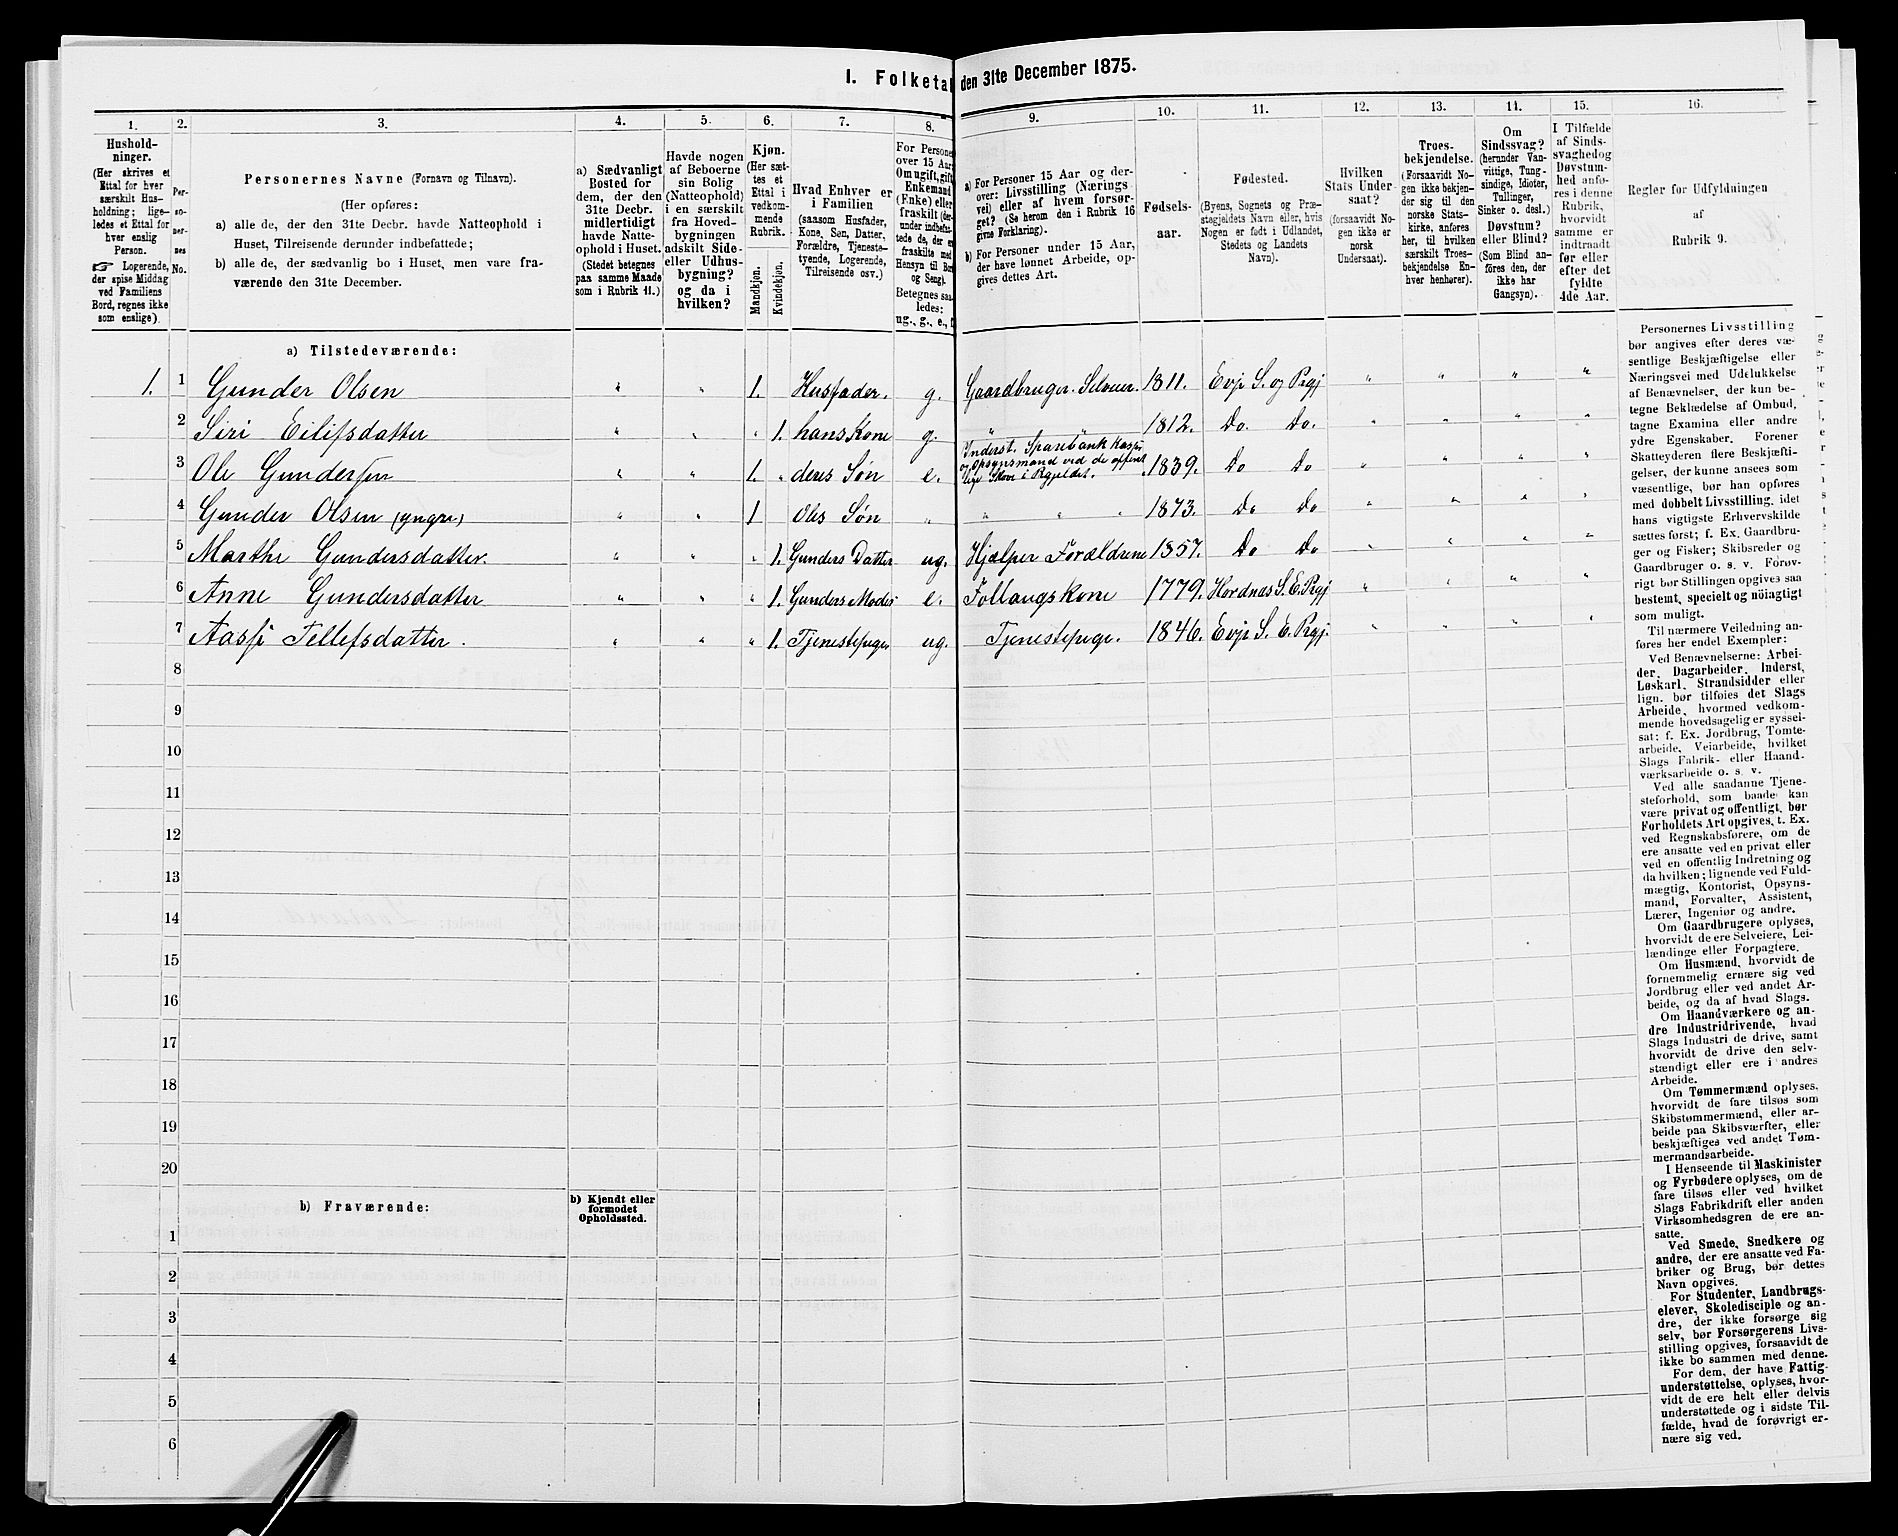 I. Folketal den 31te December 1875.
1.
Hushold-
ninger.
(Her skrives et
Ettal for hver
særskilt Hus-
holdning; lige-
ledes et Ettal for
hver enslig
Person.
☞ Logerende,
der spise Middag
ved Familiens
Bord, regnes ikke
som enslige).
2.
Per-
so-
ner-
nes
No.
3.
Personernes Navne (Fornavn og Tilnavn).
(Her opføres:
a) alle de, der den 31te Decbr. havde Natteophold i
Huset, Tilreisende derunder indbefattede;
b) alle de, der sædvanlig bo i Huset, men vare fra-
værende den 31te December.
4.
a) Sædvanligt
Bosted for
dem, der den
31te Decbr.
midlertidigt
havde Natte-
ophold i Huset.
(Stedet betegnes
paa samme Maade
som i Rubrik 11.)
5.
Havde nogen
af Beboerne
sin Bolig
(Natteophold)
i en særskilt
fra Hoved-
bygningen
adskilt Side-
eller Udhus-
bygning?
og da i
hvilken?
6.
Kjøn.
(Her sæt-
tes et
Ettal i
vedkom-
mende
Rubrik.
Mandkjøn.
Kvindekjøn.
7.
Hvad Enhver er
i Familien
(saasom Husfader,
Kone, Søn, Datter,
Forældre, Tjeneste-
tyende, Logerende,
Tilreisende osv.)
8.
For Personer
over 15 Aar:
Om ugift, gift,
Enkemand
(Enke) eller
fraskilt (der-
under indbefat-
tede de, der er
fraskilte med
Hensyn til Bord
og Seng).
Betegnes saa-
ledes:
ug., g., e.,
9.
a) For Personer 15 Aar og der-
over: Livsstilling (Nærings-
vei) eller af hvem forsør-
get? (Se herom den i Rubrik 16
givne Forklaring).
b) For Personer under 15 Aar,
der have lønnet Arbeide, op-
gives dettes Art.
10.
Fødsels-
aar.
11.
Fødested.
(Byens, Sognets og Præ-
stegjeldets Navn eller, hvis
Nogen er født i Udlandet,
Stedets og Landets
Navn).
12.
Hvilken
Stats Under-
saat?
(forsaavidt No-
gen ikke er
norsk
Undersaat).
13.
Troes-
bekjendelse.
(Forsaavidt No-
gen ikke bekjen-
der sig til den
norske Stats-
kirke, anføres
her, til hvilken
særskilt Troes-
bekjendelse En-
hver henhører).
14.
Om
Sindssvag?
(herunder Van-
vittige, Tung-
sindige, Idioter,
Tullinger,
Sinker o. desl.)
Døvstum?
eller Blind?
(Som Blind an-
føres den, der
ikke har
Gangsyn).
15.
I Tilfælde
af Sinds-
svaghed og
Døvstum-
hed anfø-
res i denne
Rubrik,
hvorvidt
samme er
indtraadt
før eller
efter det
fyldte
4de Aar.
16.
Regler for Udfyldningen
af
Rubrik 9.
a) Tilstedeværende:
1. 1 Gunder Olsen " " 1. Husfader. g. Gaardbruger. Selveier. 1811. Evje S. og Prgj " " " "
2 Siri Eilifsdatter " " " 1. hans Kone g. " 1812. Do. Do. " " " "
3 Ole Gundersen " " 1. " deres Søn e. Inderst. Sparebank Kasse
og Opsynsmand ved de offent
lige Skove i Prgjeldet. 1839. Do Do " " " "
4 Gunder Olsen (yngre) " " 1 Oles Søn " " " " 1873. Do Do " " " "
5 Marthe Gundersdatter. " " " 1. Gunders Datter ug. Hjælper Forældrene 1857. Do Do " " "
6 Anne Gundersdatter " " " 1. Gunders Moder e. Follaugskone 1779. Hordnæs S. E. Prgj " " " "
7 Aasje Tellefsdatter. " " " 1. Tjenestepige ug. Tjenestepige. 1846. Evje S. E. Prgj. " " " "
8
9
10
11
12
13
14
15
16
17
18
19
20
b) Fraværende:
b) Kjendt eller
formodet
Opholdssted.
1
2
3
4
5
6
Personernes Livsstilling
bør angives efter deres væ-
sentlige Beskjæftigelse eller
Næringsvei med Udelukkelse
af Benævnelser, der kun be-
tegne Beklædelse af Ombud,
tagne Examina eller andre
ydre Egenskaber. Forener
Skatteyderen flere Beskjæfti-
gelser, der kunne ansees som
væsentlige, bør han opføres
med dobbelt Livsstilling, idet
hans vigtigste Erhvervskilde
sættes først; f. Ex. Gaardbru-
ger og Fisker; Skibsreder og
Gaardbruger o. s. v. Forøv-
rigt bør Stillingen opgives saa
bestemt, specielt og nöiagtigt
som muligt.
Til nærmere Veiledning an-
føres her endel Exempler:
Ved Benævnelserne: Arbei-
der, Dagarbeider, Inderst,
Løskarl, Strandsidder eller
lign. bør tilføies det Slags
Arbeide, hvormed vedkom-
mende hovedsagelig er syssel-
sat: f. Ex. Jordbrug, Tomte-
arbeide, Veiarbeide, hvilket
Slags Fabrik- eller Haand-
værksarbeide o. s. v.
Ved alle saadanne Tjene-
steforhold, som baade kan
være privat og offentligt, bør
Forholdets Art opgives, t. Ex.
ved Regnskabsførere, om de
ere ansatte ved en privat eller
ved en offentlig Indretning og
da hvilken; lignende ved Fuld-
mægtig, Kontorist, Opsyns-
mand, Forvalter, Assistent,
Lærer, Ingeniør og andre.
Om Gaardbrugere oplyses,
hvorvidt de ere Selveiere, Lei-
lændinge eller Forpagtere.
Om Husmænd, hvorvidt de
fornemmelig ernære sig ved
Jordbrug eller ved andet Ar-
beide, og da af hvad Slags.
Om Haandværkere og an-
dre Industridrivende, hvad
Slags Industri de drive, samt
hvorvidt de drive den selv-
stændigt eller ere i andres
Arbeide.
Om Tømmermænd oplyses,
hvorvidt de fare tilsøs som
Skibstømmermænd, eller ar-
beide paa Skibsværfter, eller
beskjæftiges ved andet Tøm-
mermandsarbeide.
I Henseende til Maskinister
og Fyrbødere oplyses, om de
fare tilsøs eller ved hvilket
Slags Fabrikdrift eller anden
Virksomhedsgren de ere an-
satte.
Ved Smede, Snedkere og
andre, der ere ansatte ved Fa-
briker og Brug, bør dettes
Navn opgives.
For Studenter, Landbrugs-
elever, Skoledisciple og an-
dre, der ikke forsørge sig
selv, bør Forsørgerens Livs-
stilling opgives, forsaavidt de
ikke bo sammen med denne.
For dem, der have Fattig-
understøttelse, oplyses, hvor-
vidt de ere helt eller delvis
understøttede og i sidste Til-
fælde, hvad de forøvrigt er-
nære sig ved.